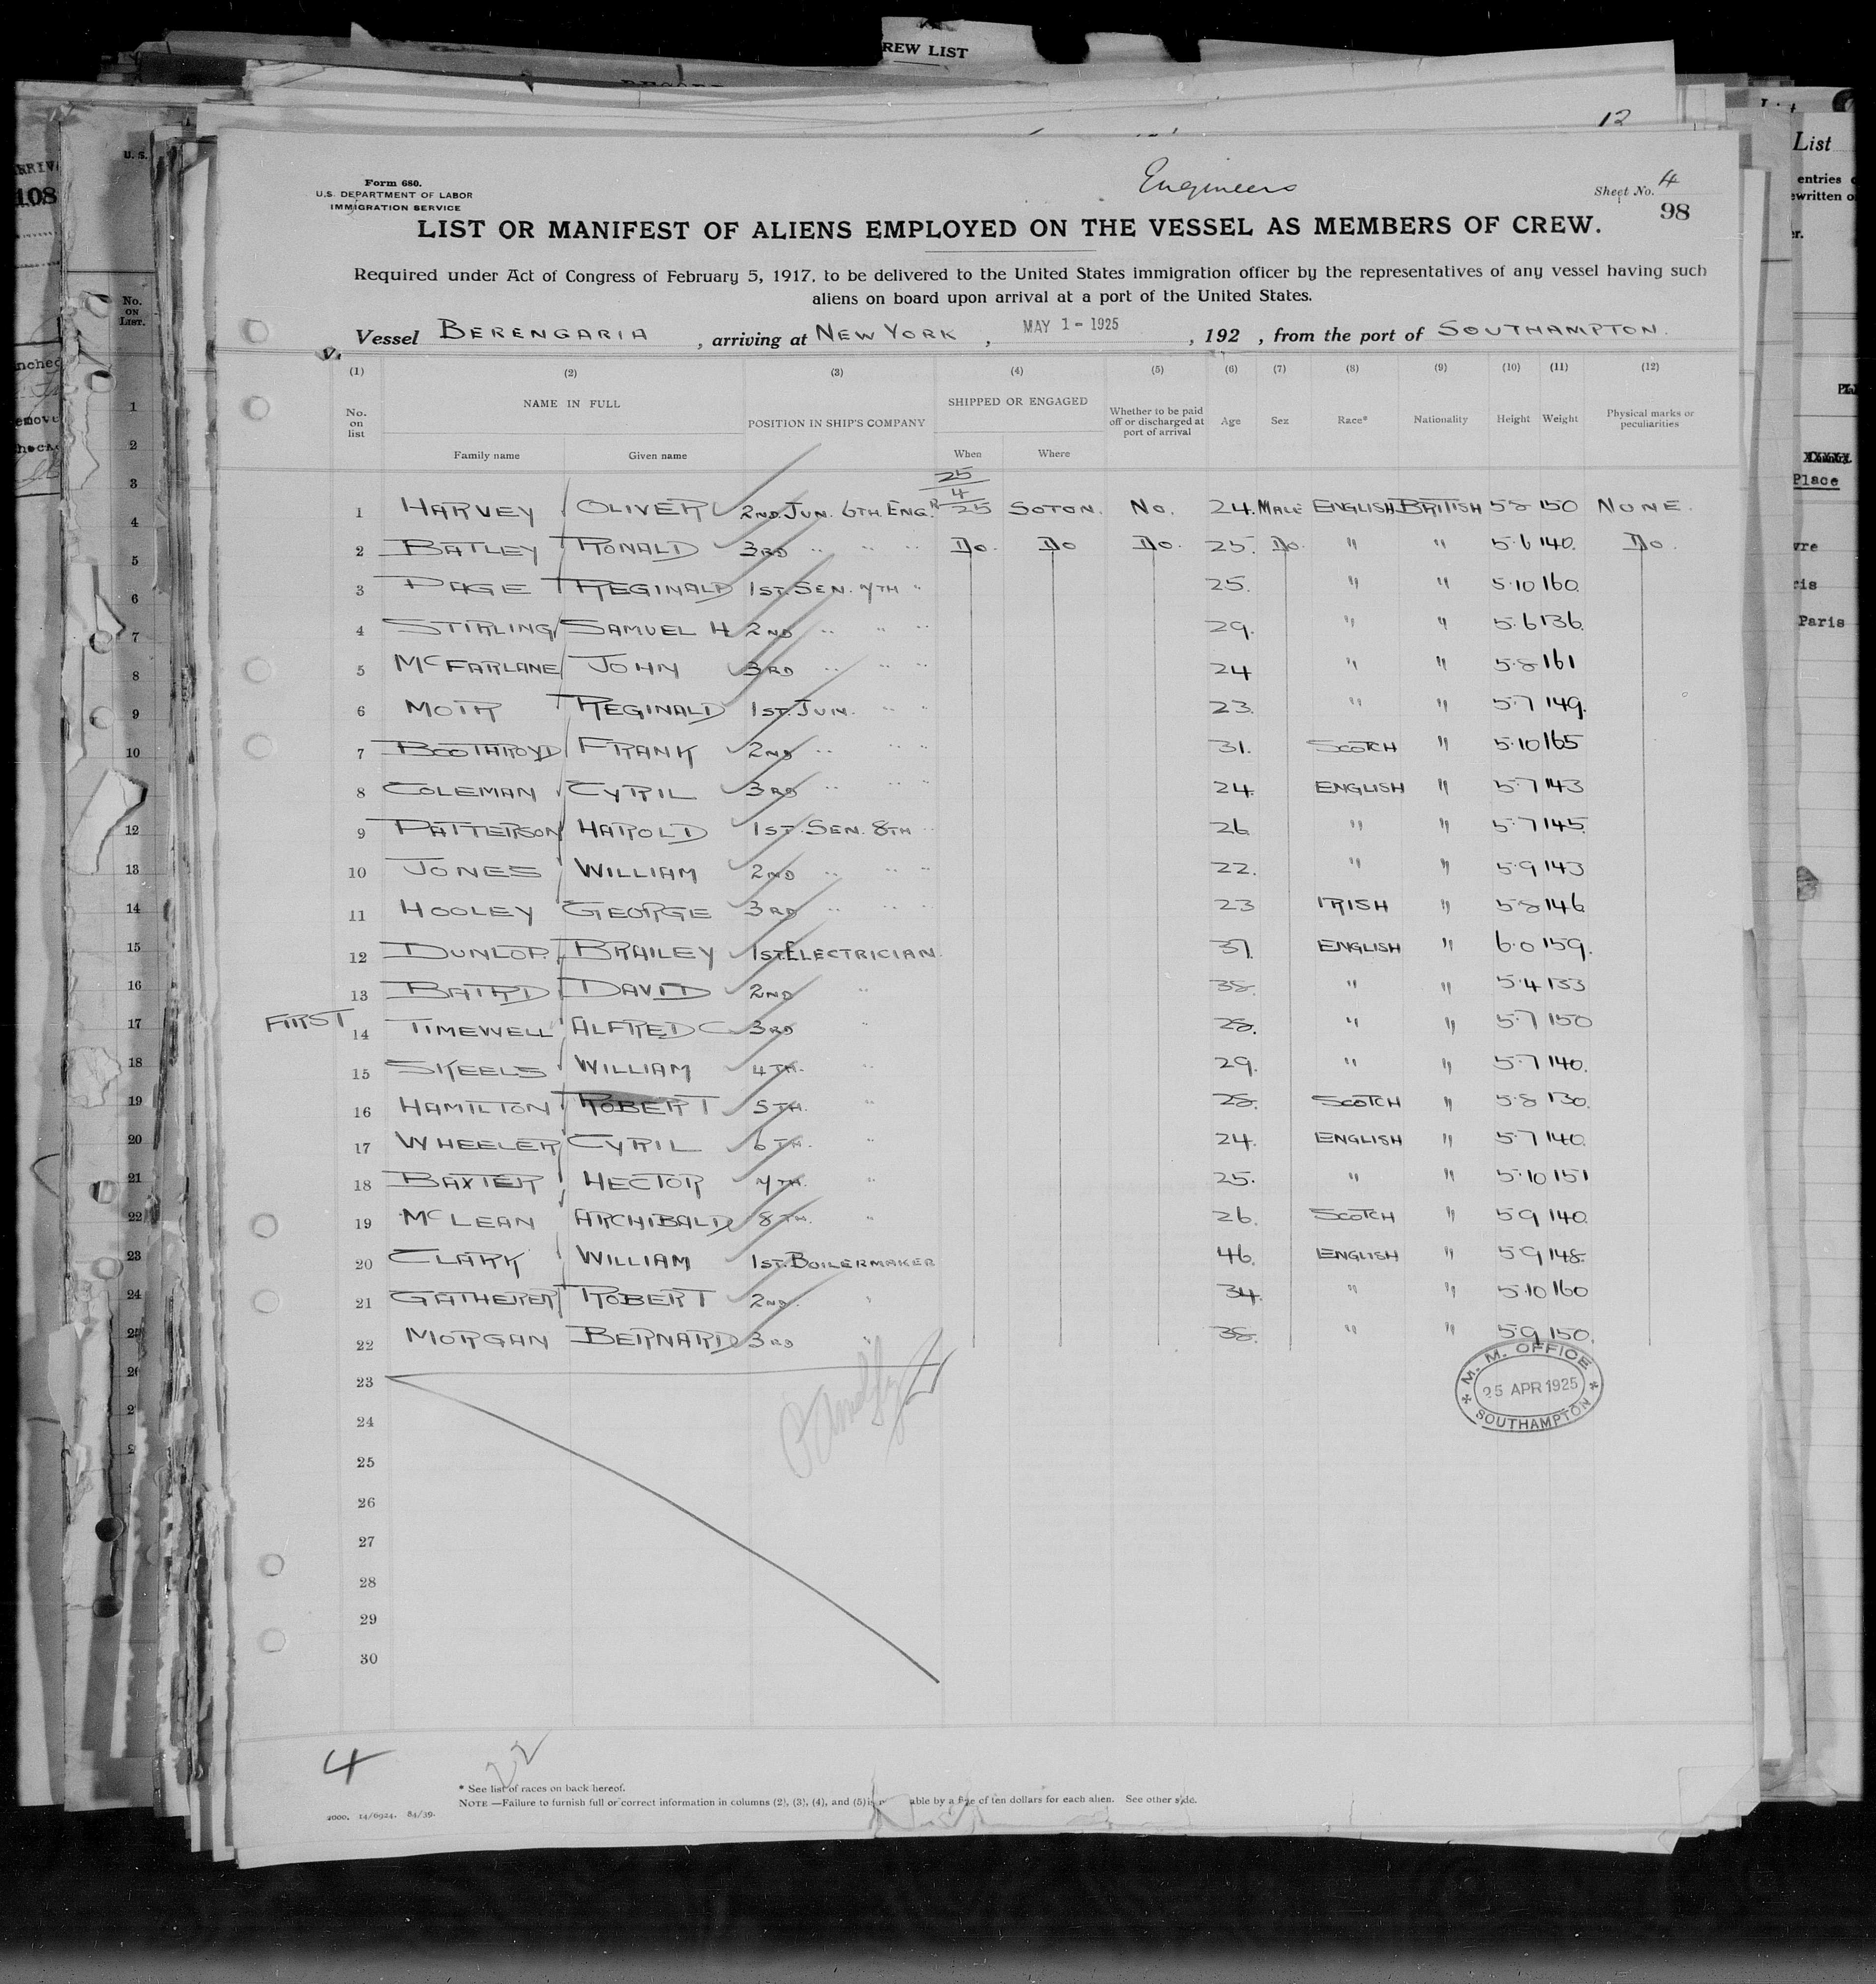 REW LIST
12
Engineers
Form 680.
U.S. DEPARTMENT OF LABOR
IMMIGRATION SERVICE
Sheet No. 4
98
LIST OR MANIFEST OF ALIENS EMPLOYED ON THE VESSEL AS MEMBERS OF CREW.
Required under Act of Congress of February 5, 1917, to be delivered to the United States immigration officer by the representatives of any vessel having such
aliens on board upon arrival at a port of the United States.
Vessel BERENGARIA, arriving at NEW YORK, MAY 1 - 1925, 192 , from the port of SOUTHAMPTON.
(1) (2) (3) (4) (5) (6) (7) (8) (9) (10) (11) (12)
No. on list NAME IN FULL POSITION IN SHIP'S COMPANY SHIPPED OR ENGAGED Whether to be paid off or discharged at port of arrival Age Sex Race* Nationality Height Weight Physical marks or peculiarities
Family name Given name When Where
1 HARVEY OLIVER 2ND. JUN. 6TH. ENG.R 25/4/25 SOTON. NO. 24. MALE ENGLISH BRITISH 5·8 150 NONE.
2 BATLEY RONALD 3RD " " " DO. DO DO. 25. DO. " " 5·6 140. DO.
3 PAGE REGINALD 1ST. SEN. 7TH " 25. " " 5·10 160.
4 STIRLING SAMUEL H 2ND " " " 29. " " 5·6 136.
5 MCFARLANE JOHN 3RD " " " 24 " " 5·8 161
6 MOIR REGINALD 1ST. JUN. " " 23. " " 5·7 149.
7 BOOTHROYD FRANK 2ND " " " 31. SCOTCH " 5·10 165
8 COLEMAN CYRIL 3RD " " " 24. ENGLISH " 5·7 143
9 PATTERSON HAROLD 1ST. SEN. 8TH " 26 " " 5·7 145.
10 JONES WILLIAM 2ND " " " 22. " " 5·9 143
11 HOOLEY GEORGE 3RD " " " 23 IRISH " 5·8 146
12 DUNLOP. BRAILEY 1ST. ELECTRICIAN. 37. ENGLISH " 6·0 159.
13 BAIRD DAVID 2ND " 38. " " 5·4 133
FIRST 14 TIMEWELL ALFRED C 3RD " 28. " " 5·7 150
15 SKEELS WILLIAM 4TH. " 29. " " 5·7 140.
16 HAMILTON ROBERT 5TH. " 28. SCOTCH " 5·8 130.
17 WHEELER CYRIL 6TH. " 24. ENGLISH " 5·7 140.
18 BAXTER HECTOR 7TH. " 25. " " 5·10 151
19 MCLEAN ARCHIBALD 8TH. " 26. SCOTCH " 5·9 140.
20 CLARK WILLIAM 1ST. BOILERMAKER 46. ENGLISH " 5·9 148.
21 GATHERER ROBERT 2ND. " 34. " " 5·10 160
22 MORGAN BERNARD 3RD " 38. " " 5·9 150.
23
24
25
26
27
28
29
30
M. M. OFFICE
25 APR 1925
SOUTHAMPTON
4
22
* See list of races on back hereof.
NOTE —Failure to furnish full or correct information in columns (2), (3), (4), and (5) is able by a fine of ten dollars for each alien. See other side.
2000. 14/6924. 84/39.